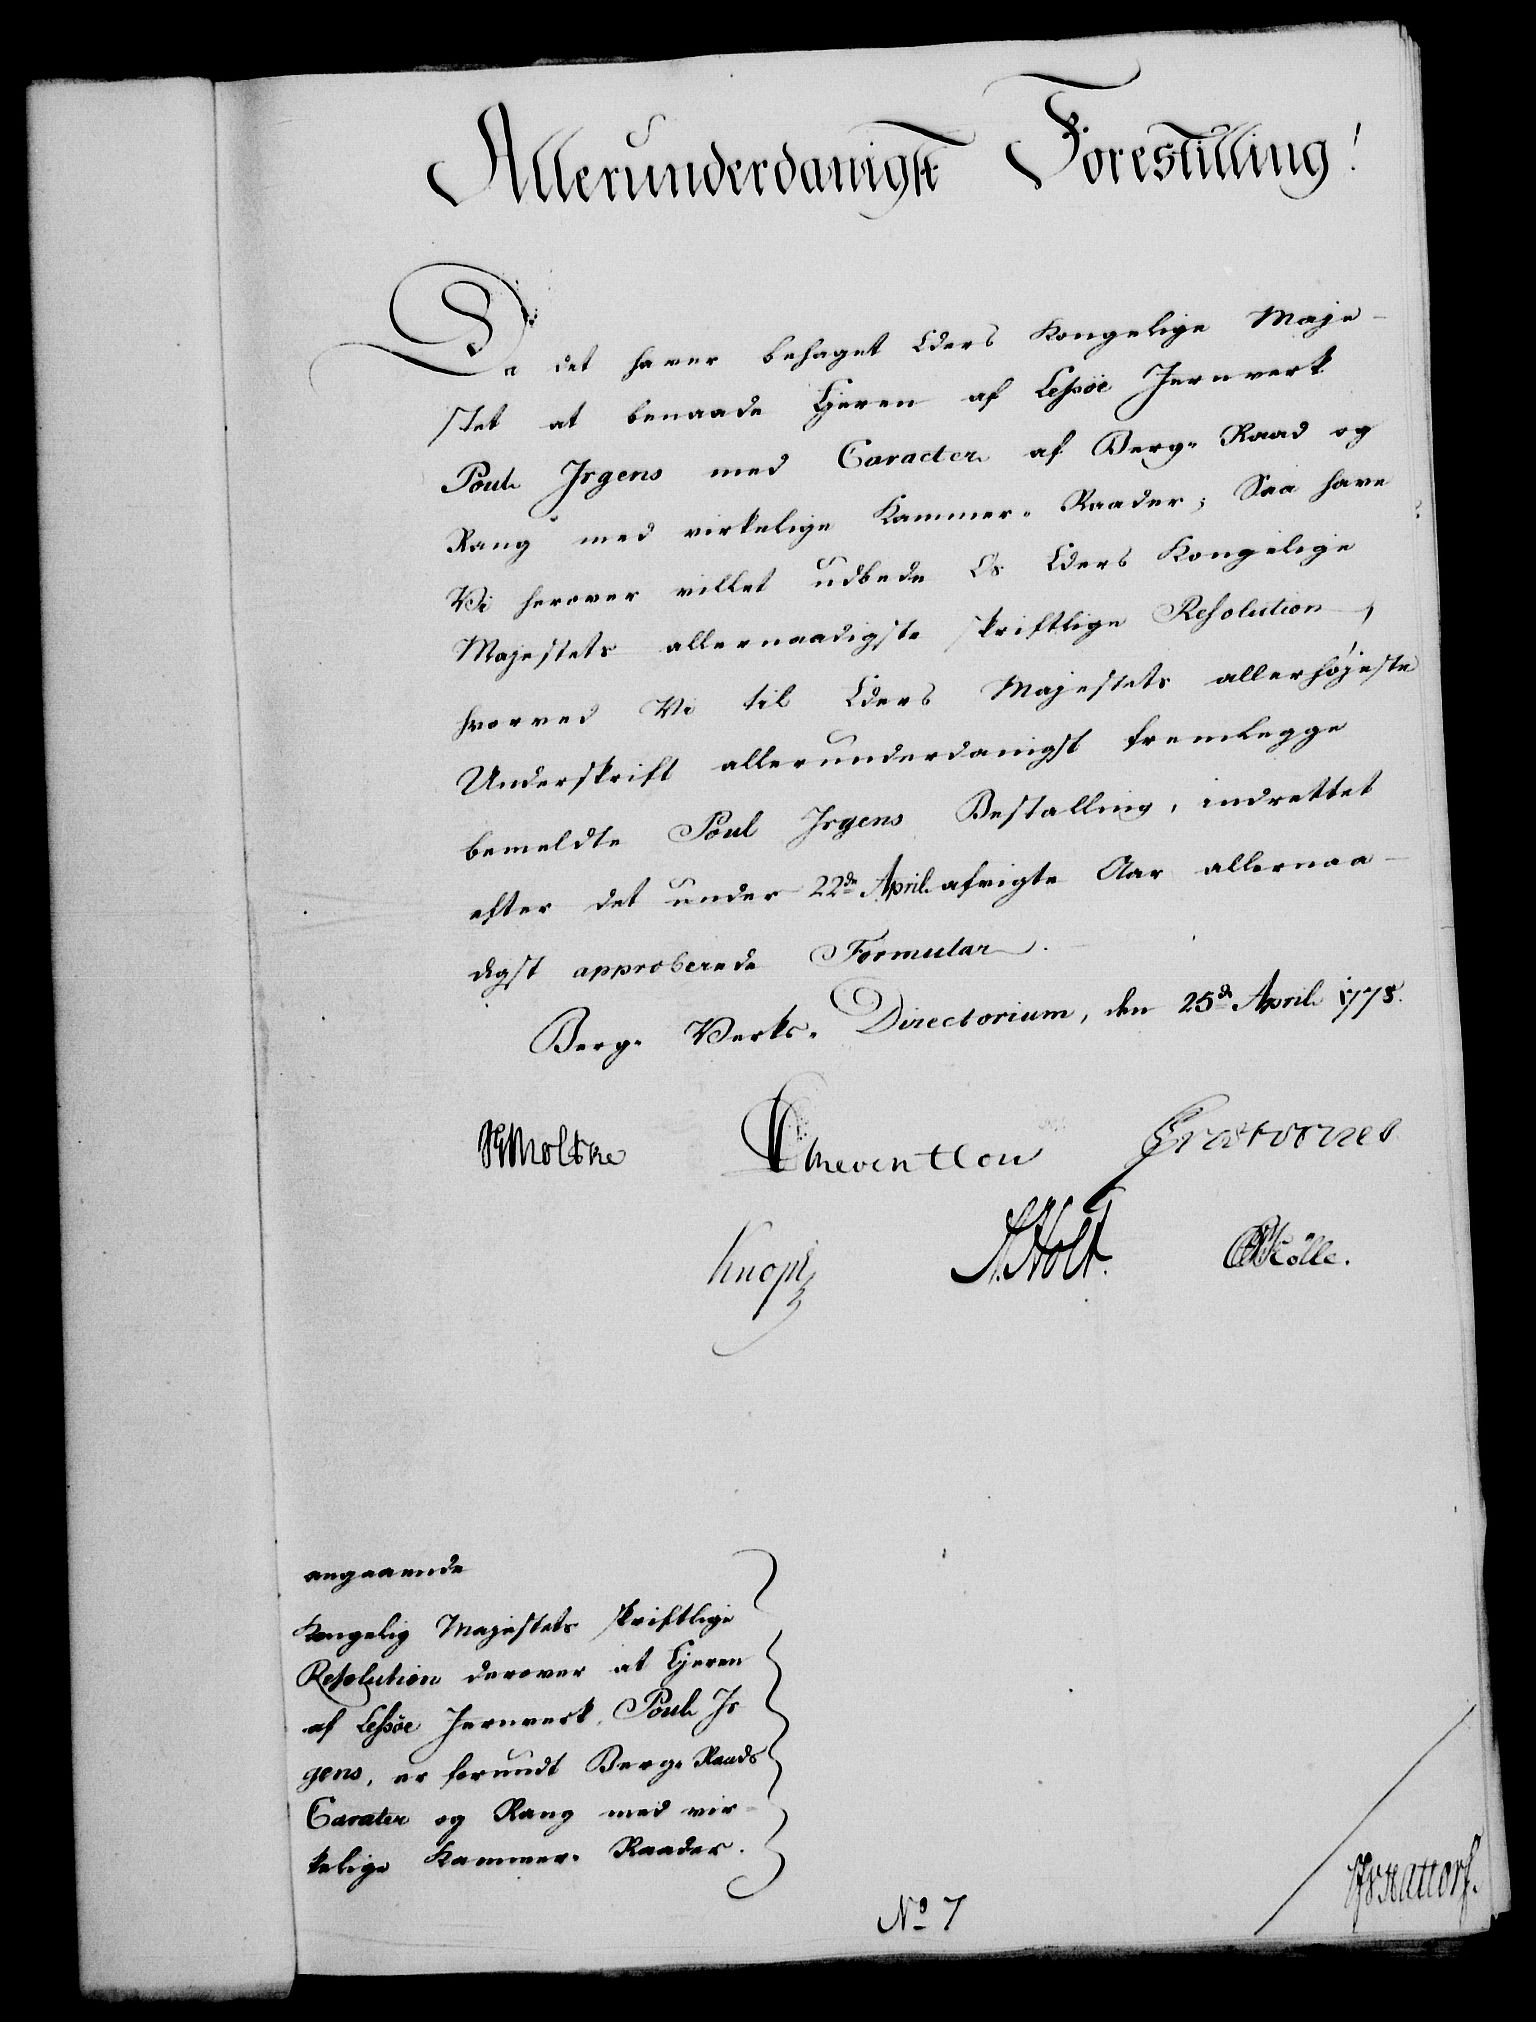 Allerunderdanigst Forestilling!
Da det haver behaget Eders Kongelige Maje-
stet at benaade Ejeren af Lessöe Jernverk
Poul Irgens med Caracter af Berg-Raad og
Rang med virkelige Kammer-Raader; Saa have
Vi herover villet udbede Os Eders Kongelige
Majestets allernaadigste skriftlige Resolution,
hvorved Vi til Eders Majestets allerhøjeste
Underskrift allerunderdanigst fremlegge
bemeldte Poul Irgens Bestalling, indrettet
efter det under 22de April afvigte Aar allernaa-
digst approberede Formular.
Berg-Verks-Directorium, den 25de April 1778.
Moltke Chreventlou
Knoph A. Holt. Kölle.
angaaende
Kongelig Majestets skriftlige
Resolution derover at Ejeren
af Lessöe Jernverk, Poul Ir
gens, er forundt Berg-Raads
Carater og Rang med vir-
kelige Kammer-Raader.
No 7